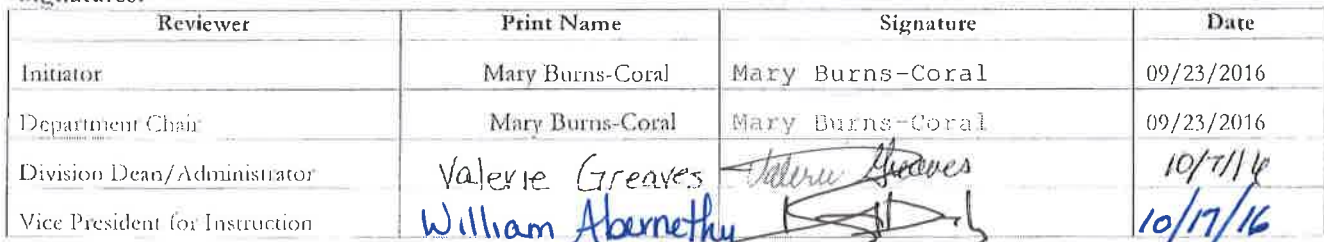 Signatures:
Reviewer Print Name Signature Date
Initiator Mary Burns-Coral Mary Burns-Coral 09/23/2016
Department Chair Mary Burns-Coral Mary Burns-Coral 09/23/2016
Division Dean/Administrator Valerie Greaves Valerie Greaves 10/7/16
Vice President for Instruction William Abernethy 10/17/16